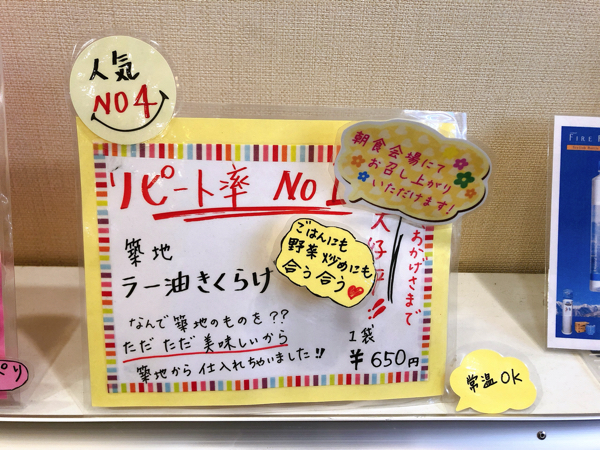 人気
NO4
リピート率 NO1
朝食会場にて
お召し上がり
いただけます!
おかげさまで
大好評!!
築地
ラー油きくらげ
ごはんにも
野菜炒めにも
合う合う
なんで築地のものを??
ただただ美味しいから
築地から仕入れちゃいました!!
1袋
¥650円
常温OK
FIRE